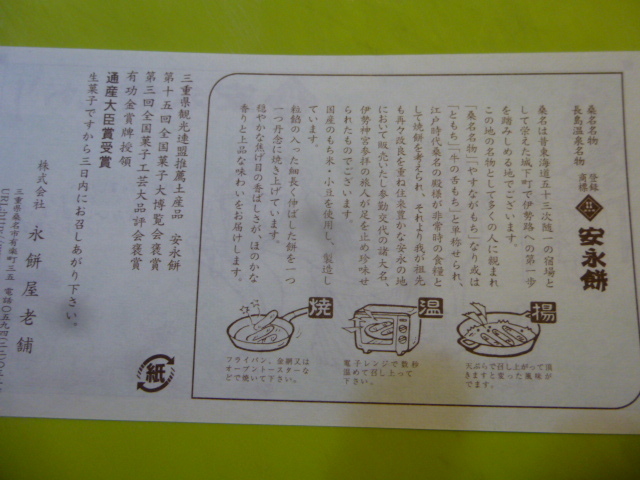 桑名名物
長島温泉名物
登録
商標
安永餅
桑名は昔東海道五十三次随一の宿場と
して栄えた城下町で伊勢路への第一歩
を踏みしめる地でございます。
この地の名物として多くの人に親まれ
「桑名名物」「やすながもち」なり或は
「ともち」「牛の舌もち」と単称せられ、
江戸時代桑名の殿様が非常時の食糧と
して焼餅を考えられ、それより我が祖先
も再々改良を重ね往来豊かな安永の地
において販売いたし参勤交代の諸大名、
伊勢神宮参拝の旅人が足を止め珍味せ
られたものでございます。
国産のもち米・小豆を使用し、製造し
ています。
粒餡の入った細長く伸ばした餅を一つ
一つ丹念に焼き上げています。
穏やかな焦げ目の香ばしさが、ほのかな
香りと上品な味わいをお届けします。
揚
天ぷらで召し上がって頂
きますと変った風味が
でます。
温
電子レンジで数秒
温めて召し上って
下さい。
焼
フライパン、金網又は
オーブントースターな
どで焼いて下さい。
三重県観光連盟推薦土産品 安永餅
第十五回全国菓子大博覧会褒賞
第三回全国菓子工芸大品評会褒賞
有功金賞牌授領
通産大臣賞受賞
生菓子ですから三日内にお召しあがり下さい。
株式会社 永餅屋老舗
三重県桑名市有楽町三五 電話〇五九四
紙